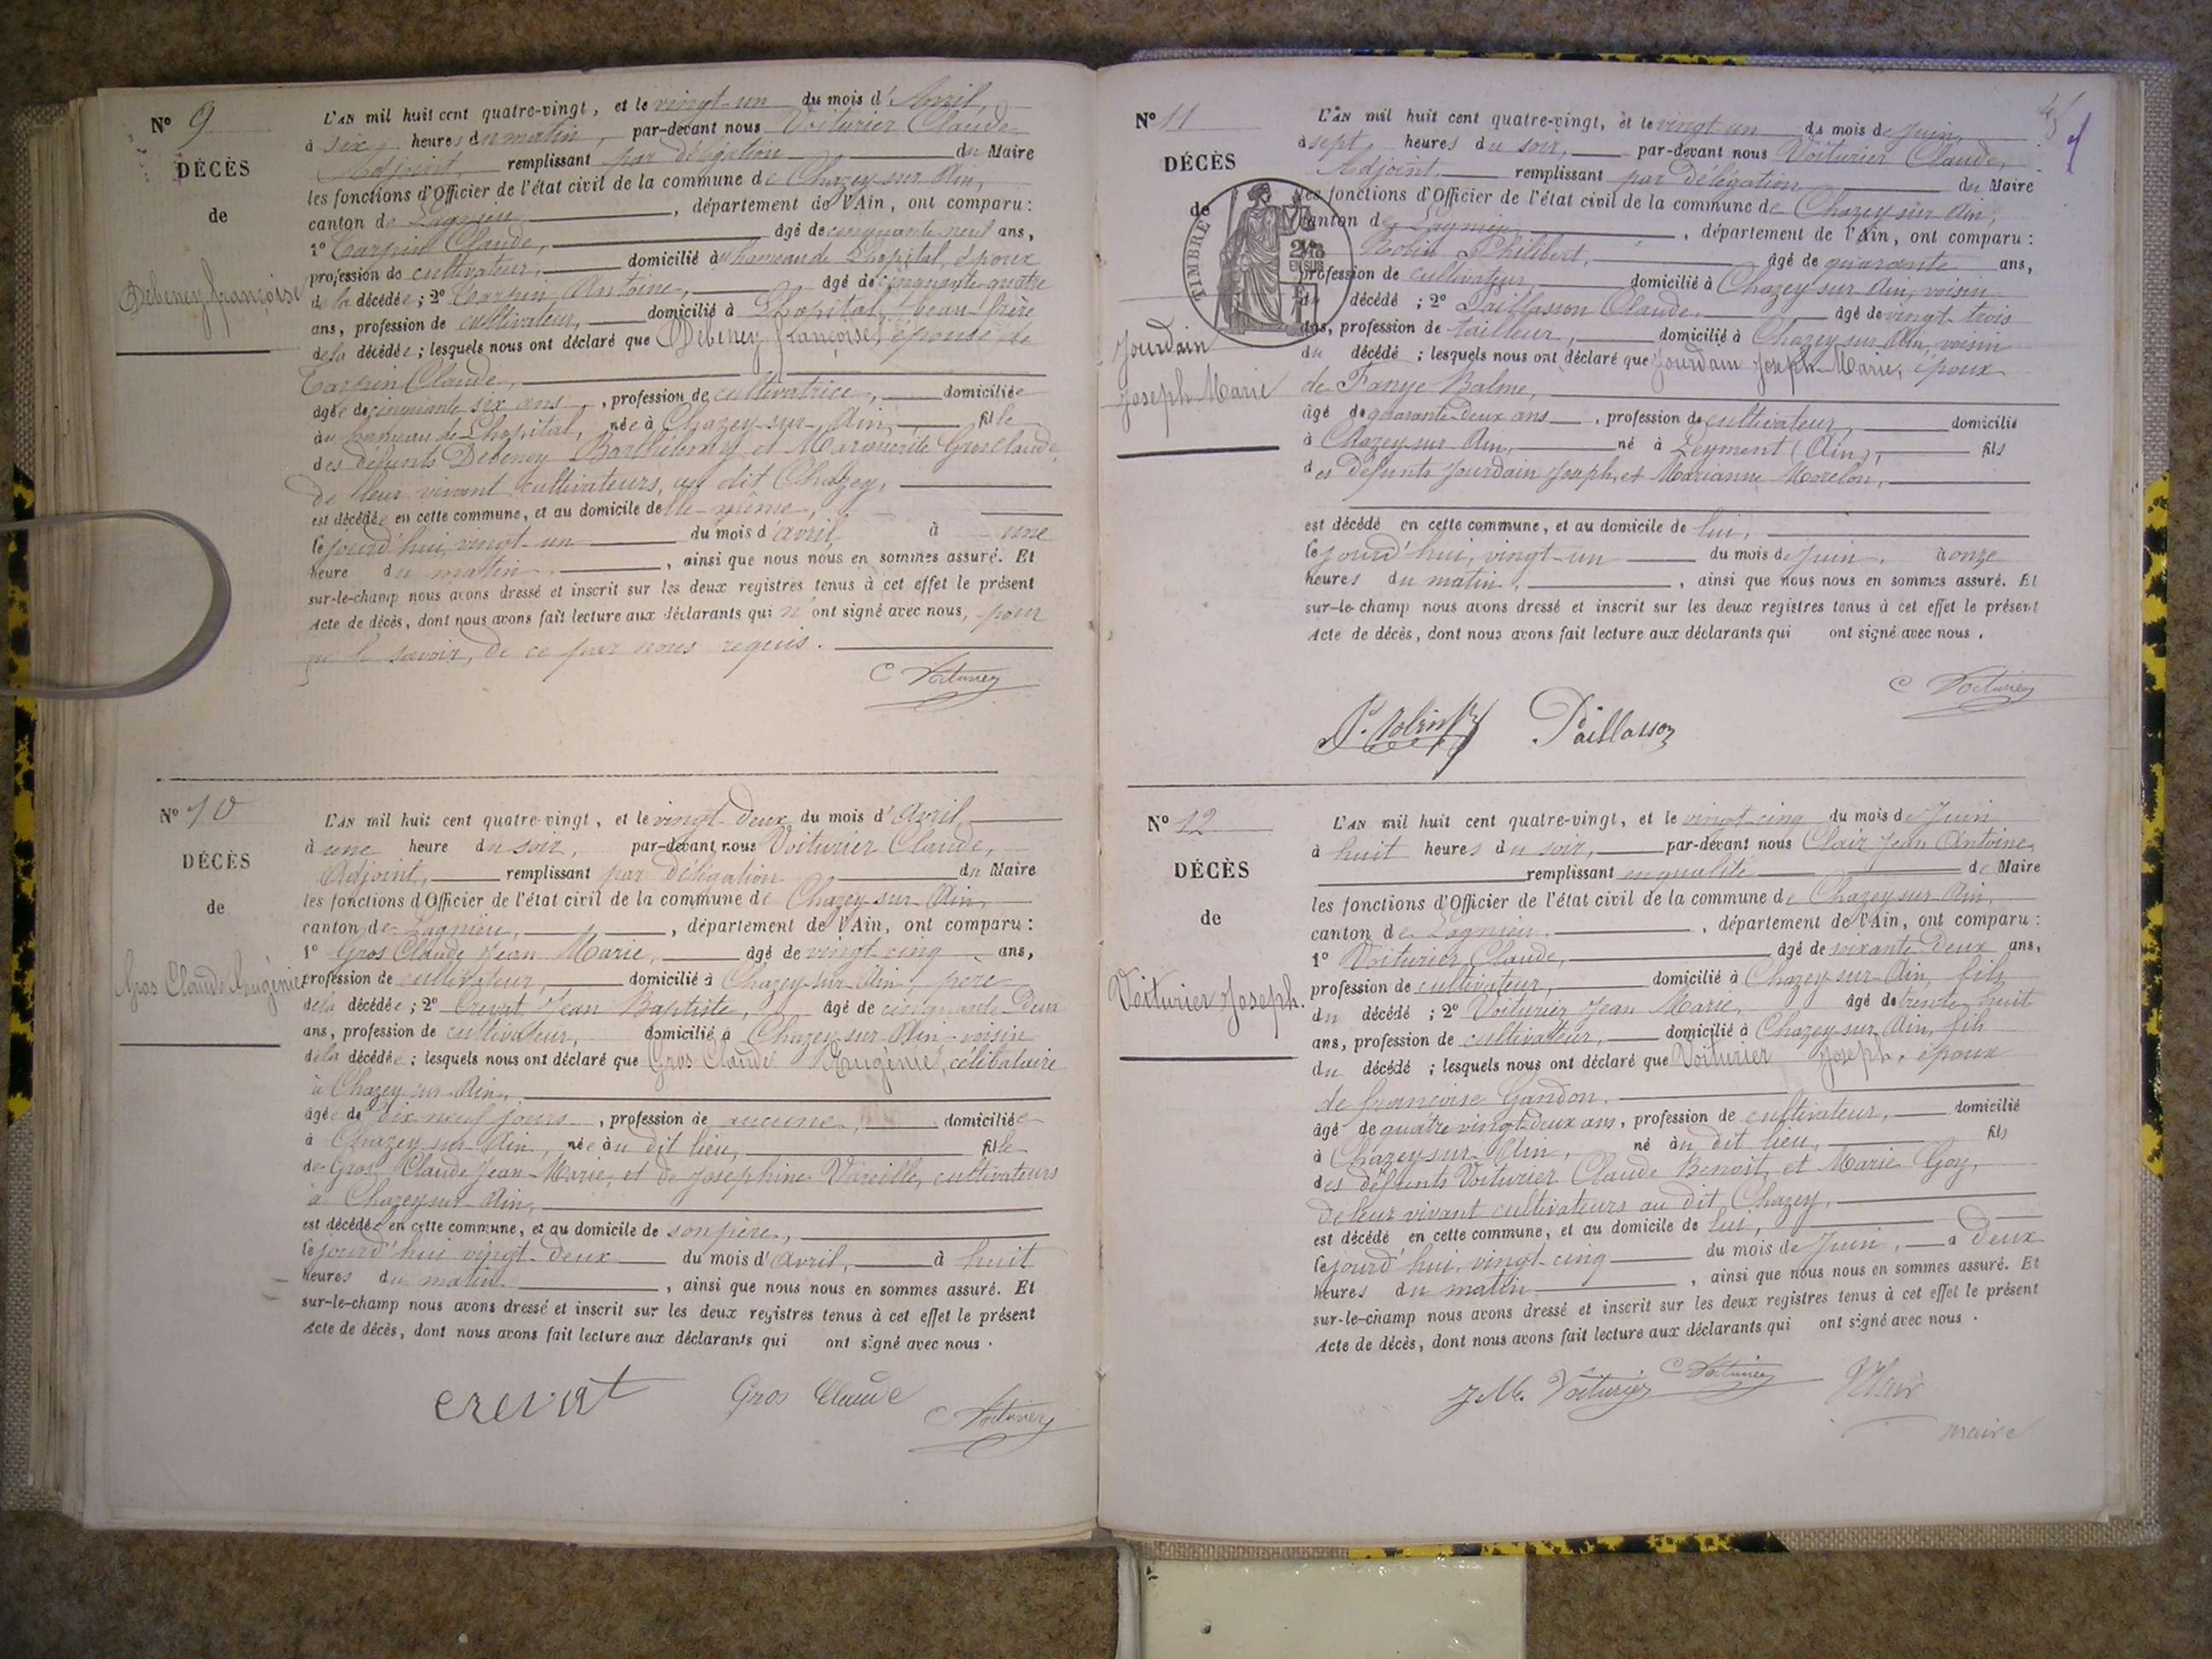 Nº 9
DÉCÈS
de
Debeney françoise
L'AN mil huit cent quatre-vingt, et le vingt-un du mois d'Avril,
à six heures du matin, par-devant nous Voiturier Claude
Adjoint, remplissant par délégation du Maire
les fonctions d'Officier de l'état civil de la commune de Chazey-sur-Ain,
canton de Lagnieu, département de l'Ain, ont comparu :
1º Carpin Claude, âgé de cinquante neuf ans,
profession de cultivateur, domicilié au hameau de Lhopital, époux
de la décédée ; 2º Carpin Antoine, âgé de cinquante-quatre
ans, profession de cultivateur, domicilié à Lhopital, beau-frère
de la décédée ; lesquels nous ont déclaré que Debeney françoise, épouse de
Carpin Claude,
âgée de cinquante six ans, profession de cultivatrice, domiciliée
au hameau de Lhopital, née à Chazey-sur-Ain, fille
des défunts Debeney Barthélemy et Marguerite Gros Claude,
de leur vivant cultivateurs, au dit Chazey,
est décédée en cette commune, et au domicile de elle-même,
ce jourd'hui, vingt-un du mois d'avril, à une
heure du matin, ainsi que nous nous en sommes assuré. Et
sur-le-champ nous avons dressé et inscrit sur les deux registres tenus à cet effet le présent
Acte de décès, dont nous avons fait lecture aux déclarants qui n'ont signé avec nous, pour
ne le savoir, de ce par nous requis.
C Voiturier
Nº 10
DÉCÈS
de
Gros Claude Eugénie
L'AN mil huit cent quatre-vingt, et le vingt-deux du mois d'Avril
à une heure du soir, par-devant nous Voiturier Claude,
Adjoint, remplissant par délégation du Maire
les fonctions d'Officier de l'état civil de la commune de Chazey-sur-Ain,
canton de Lagnieu, département de l'Ain, ont comparu :
1º Gros Claude Jean Marie, âgé de vingt cinq ans,
profession de cultivateur, domicilié à Chazey-sur-Ain, père
de la décédée ; 2º Crevat Jean Baptiste, âgé de cinquante-deux
ans, profession de cultivateur, domicilié à Chazey-sur-Ain voisin
de la décédée ; lesquels nous ont déclaré que Gros Claude Eugénie, célibataire
à Chazey-sur-Ain,
âgée de dix neuf jours, profession de aucune, domiciliée
à Chazey-sur-Ain, née au dit lieu, fille
de Gros Claude Jean-Marie, et de Josephine Vareille, cultivateurs
à Chazey-sur-Ain,
est décédée en cette commune, et au domicile de son père,
ce jourd'hui vingt-deux du mois d'Avril, à huit
heures du matin, ainsi que nous nous en sommes assuré. Et
sur-le-champ nous avons dressé et inscrit sur les deux registres tenus à cet effet le présent
Acte de décès, dont nous avons fait lecture aux déclarants qui ont signé avec nous.
crevat Gros Claude C Voiturier
Nº 11
DÉCÈS
de
TIMBRE
Jourdain
Joseph Marie
L'AN mil huit cent quatre-vingt, et le vingt un du mois de Juin,
à sept heures du soir, par-devant nous Voiturier Claude,
Adjoint, remplissant par délégation du Maire
les fonctions d'Officier de l'état civil de la commune de Chazey sur Ain,
canton de Lagnieu, département de l'Ain, ont comparu :
Robin Philibert, âgé de quarante ans,
profession de cultivateur, domicilié à Chazey sur Ain, voisin
du décédé ; 2º Paillasson Claude, âgé de vingt-trois
ans, profession de tailleur, domicilié à Chazey sur Ain, voisin
du décédé ; lesquels nous ont déclaré que Jourdain Joseph-Marie, époux
de Fanye Balme,
âgé de quarante-deux ans, profession de cultivateur, domicilié
à Chazey sur Ain, né à Leyment (Ain), fils
des défunts Jourdain Joseph, et Marianne Morelon,
est décédé en cette commune, et au domicile de lui,
ce jourd'hui, vingt-un du mois de Juin, à onze
heures du matin, ainsi que nous nous en sommes assuré. Et
sur-le-champ nous avons dressé et inscrit sur les deux registres tenus à cet effet le présent
Acte de décès, dont nous avons fait lecture aux déclarants qui ont signé avec nous.
C Voiturier
P. Robin Paillasson
Nº 12
DÉCÈS
de
Voiturier Joseph.
L'AN mil huit cent quatre-vingt, et le vingt-cinq du mois de Juin
à huit heures du soir, par-devant nous Clair Jean Antoine,
remplissant en qualité de Maire
les fonctions d'Officier de l'état civil de la commune de Chazey sur Ain,
canton de Lagnieu, département de l'Ain, ont comparu :
1º Voiturier Claude, âgé de soixante-deux ans,
profession de cultivateur, domicilié à Chazey-sur-Ain, fils
du décédé ; 2º Voiturier Jean Marie, âgé de trente-huit
ans, profession de cultivateur, domicilié à Chazey sur Ain, fils
du décédé ; lesquels nous ont déclaré que Voiturier Joseph, époux
de françoise Gandon,
âgé de quatre vingt-deux ans, profession de cultivateur, domicilié
à Chazey sur Ain, né au dit lieu, fils
des défunts Voiturier Claude Benoit, et Marie Goy,
de leur vivant cultivateurs au dit Chazey,
est décédé en cette commune, et au domicile de lui,
ce jourd'hui, vingt-cinq du mois de Juin, à deux
heures du matin, ainsi que nous nous en sommes assuré. Et
sur-le-champ nous avons dressé et inscrit sur les deux registres tenus à cet effet le présent
Acte de décès, dont nous avons fait lecture aux déclarants qui ont signé avec nous.
J M. Voiturier C Voiturier Clair
maire